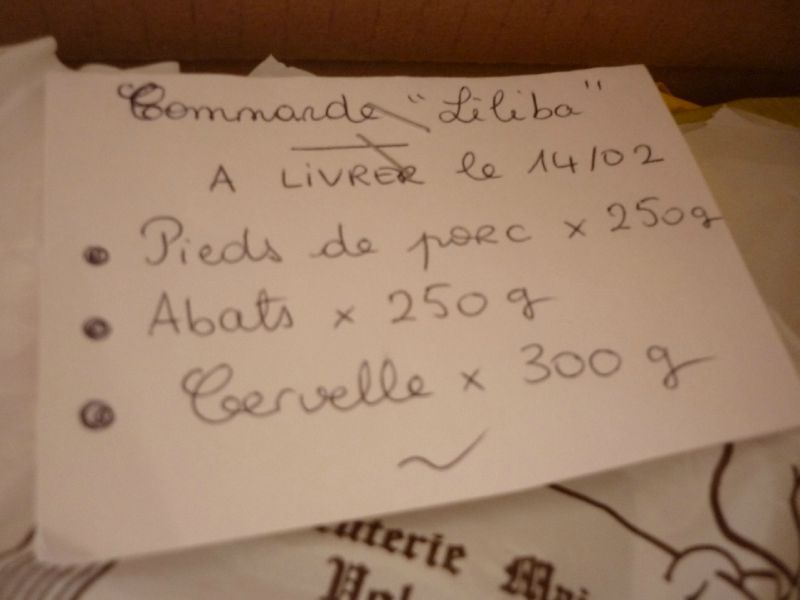 Commande "Liliba"
A LiVRER le 14/02
• Pieds de porc x 250g
• Abats x 250 g
• Cervelle x 300 g